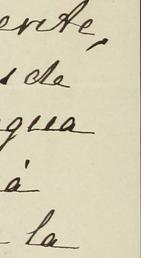 erite,
de
gua
à
la